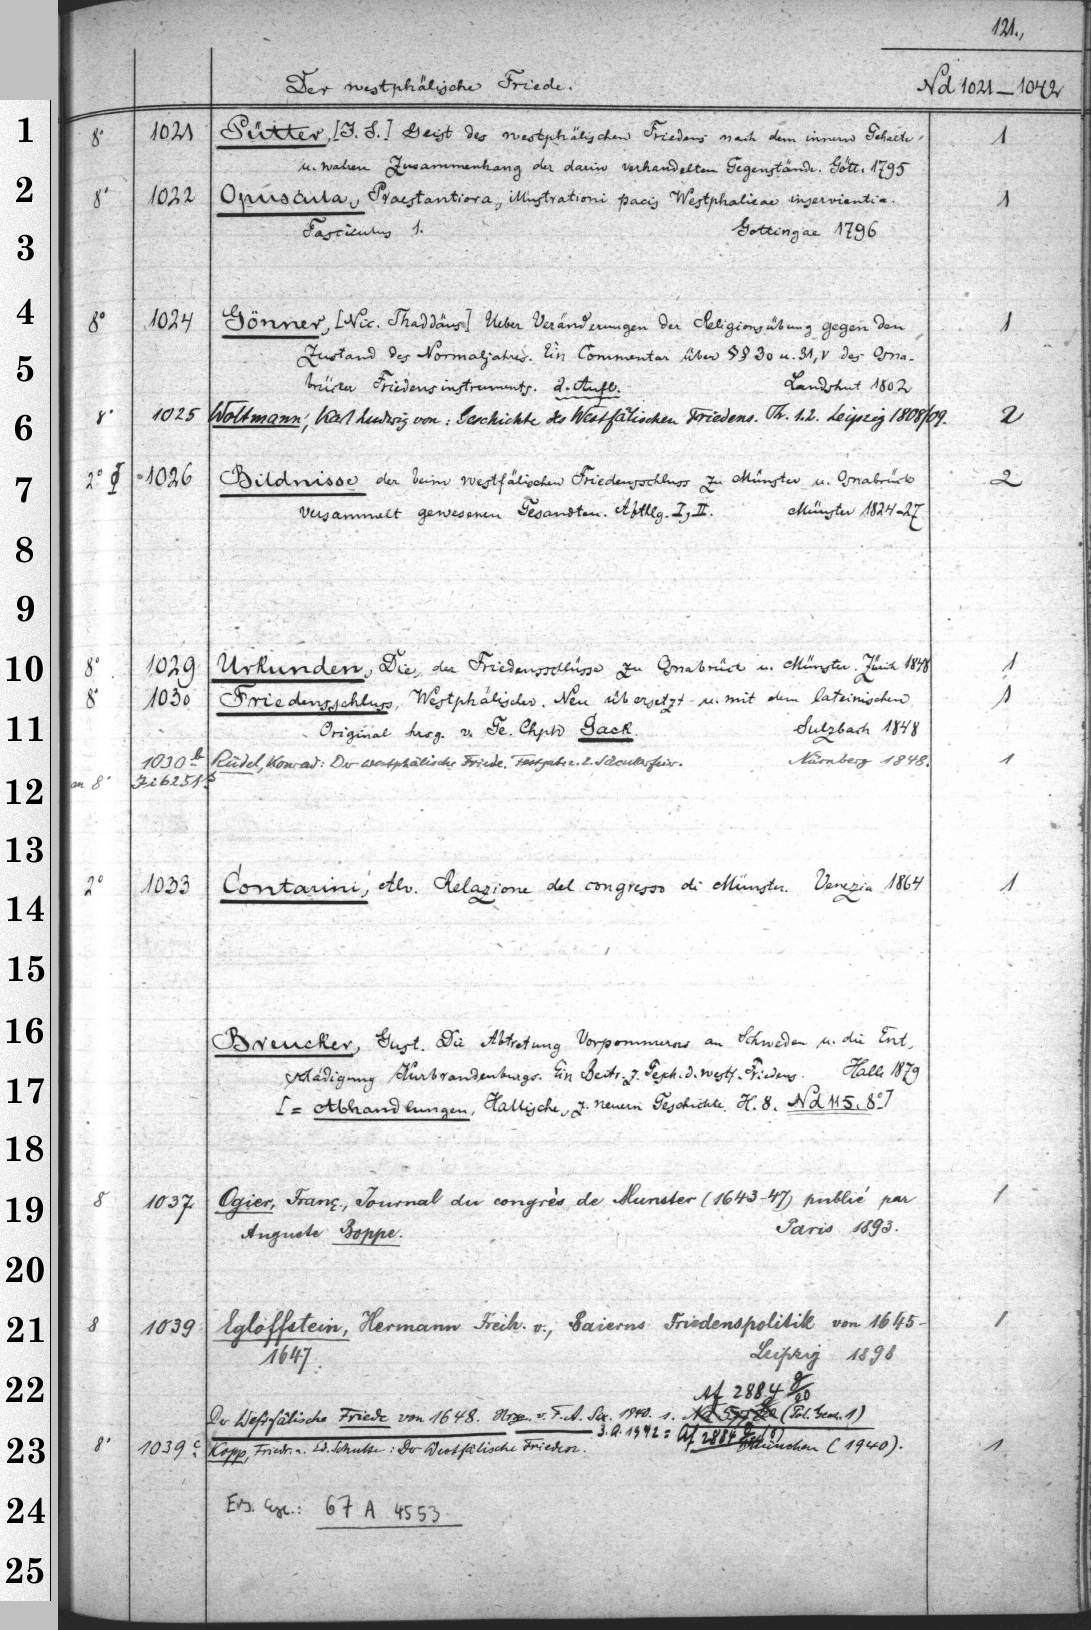 121.,
Der westphälische Friede. Nd 1021–1042
1
8° 1021 Pütter, [J. S.] Geist des westphälischen Friedens nach dem innern Gehalte 1
u. wahren Zusammenhang der darin verhandelten Gegenstände. Gött. 1795
2
8° 1022 Opuscula, Praestantiora, illustrationi pacis Westphalicae inservientia. 1
Fasciculus 1. Gottingae 1796
3
4
8° 1024 Gönner, [Nic. Thaddäus] Ueber Veränderungen der Religionsübung gegen den 1
Zustand des Normaljahres. Ein Commentar über §§ 30 u. 31, V des Osna-
5
brücker Friedensinstruments. 2. Aufl. Landshut 1802
6
8° 1025 Woltmann, Karl Ludwig von: Geschichte des Westfälischen Friedens. Th. 1.2. Leipzig 1808/09. 2
7
2° 1026 Bildnisse der beim westfälischen Friedensschluss zu Münster u. Osnabrück 2
versammelt gewesenen Gesandten. Abtllg. I, II. Münster 1824-27
8
9
10
8° 1029 Urkunden, Die, der Friedensschlüsse zu Osnabrück u. Münster. Zürich 1848 1
8° 1030 Friedensschluss, Westphälischer. Neu übersetzt u. mit dem lateinischen 1
11
Original hrsg. v. Ge. Chph Gack. Sulzbach 1848
1030 b Rüdel, Konrad: Der westphälische Friede. Festgabe z. 2. Säcularfeier. Nürnberg 1848. 1
12
an 8°
13
2° 1033 Contarini, Alv. Relazione del congresso di Münster. Venezia 1864 1
14
15
16
Breucker, Gust. Die Abtretung Vorpommerns an Schweden u. die Ent-
schädigung Kurbrandenburgs. Ein Beitr. z. Gesch. d. westf. Friedens. Halle 1879
17
[= Abhandlungen, Hallische, z. neuern Geschichte. H. 8. Nd 115. 8°]
18
19
8° 1037 Ogier, Franç., Journal du congrès de Munster (1643-47) publié par 1
Auguste Boppe. Paris 1893.
20
21
8 1039 Egloffstein, Hermann Freih. v., Baierns Friedenspolitik von 1645- 1
1647. Leipzig 1898
22
Af 2884 g/20
Der Westfälische Friede von 1648. Hrsgn. v. F. A. Six. 1940. s. (Pol. Gesch. 1)
3. A. 1942 = Af 2884
23
8° 1039 c Kopp, Friedr. u. Ed. Schulte: Der Westfälische Frieden. München (1940). 1
24
Ers. Exe.: 67 A 4553
25